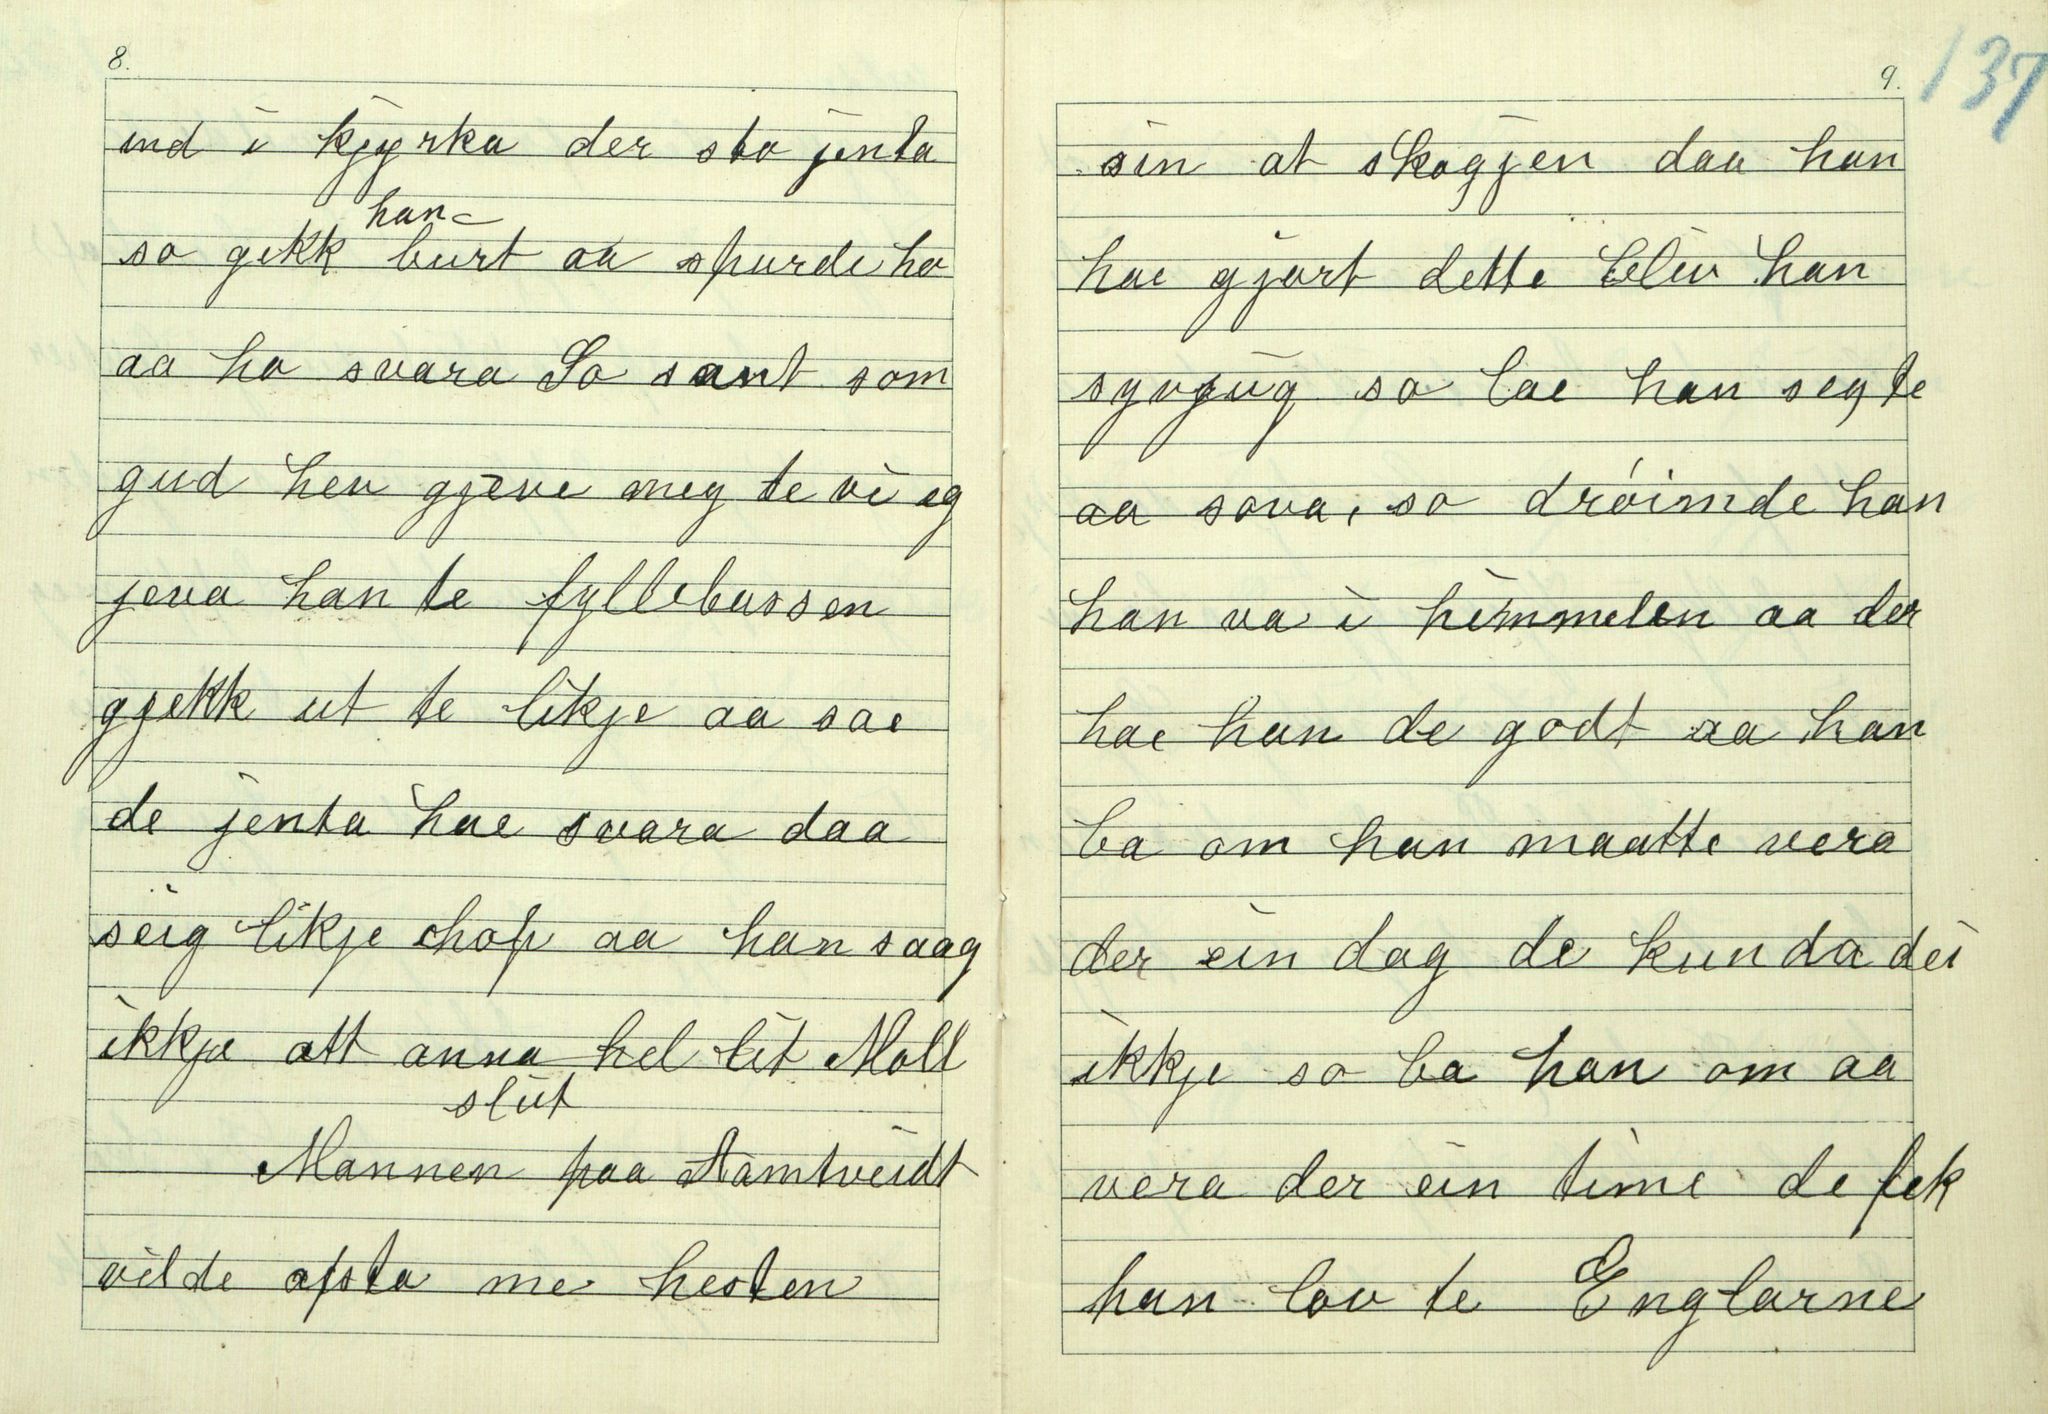 8.
ind i kjyrka der sto jenta
han
so gekk burt aa spurde ho
aa ho svara So sant som
gud hev gjeve meg te vi eg
jeva han te fyllebussen
gjekk ut te likje aa sae
de jenta hae svara daa
seig likje ihop aa han saag
ikkje att anna hel lit Moll
slut
Mannen paa Aamtveidt
vilde afsta me hesten
137
9.
sin at skogjen daa han
hae gjort dette blev han
syvjug so lae han seg te
aa sova, so dröimde han
han va i himmelen aa der
hae han de godt aa han
ba om han maatte vera
der ein dag de kunda dei
ikkje so ba han om aa
vera der ein time de fek
han lov te Englarne